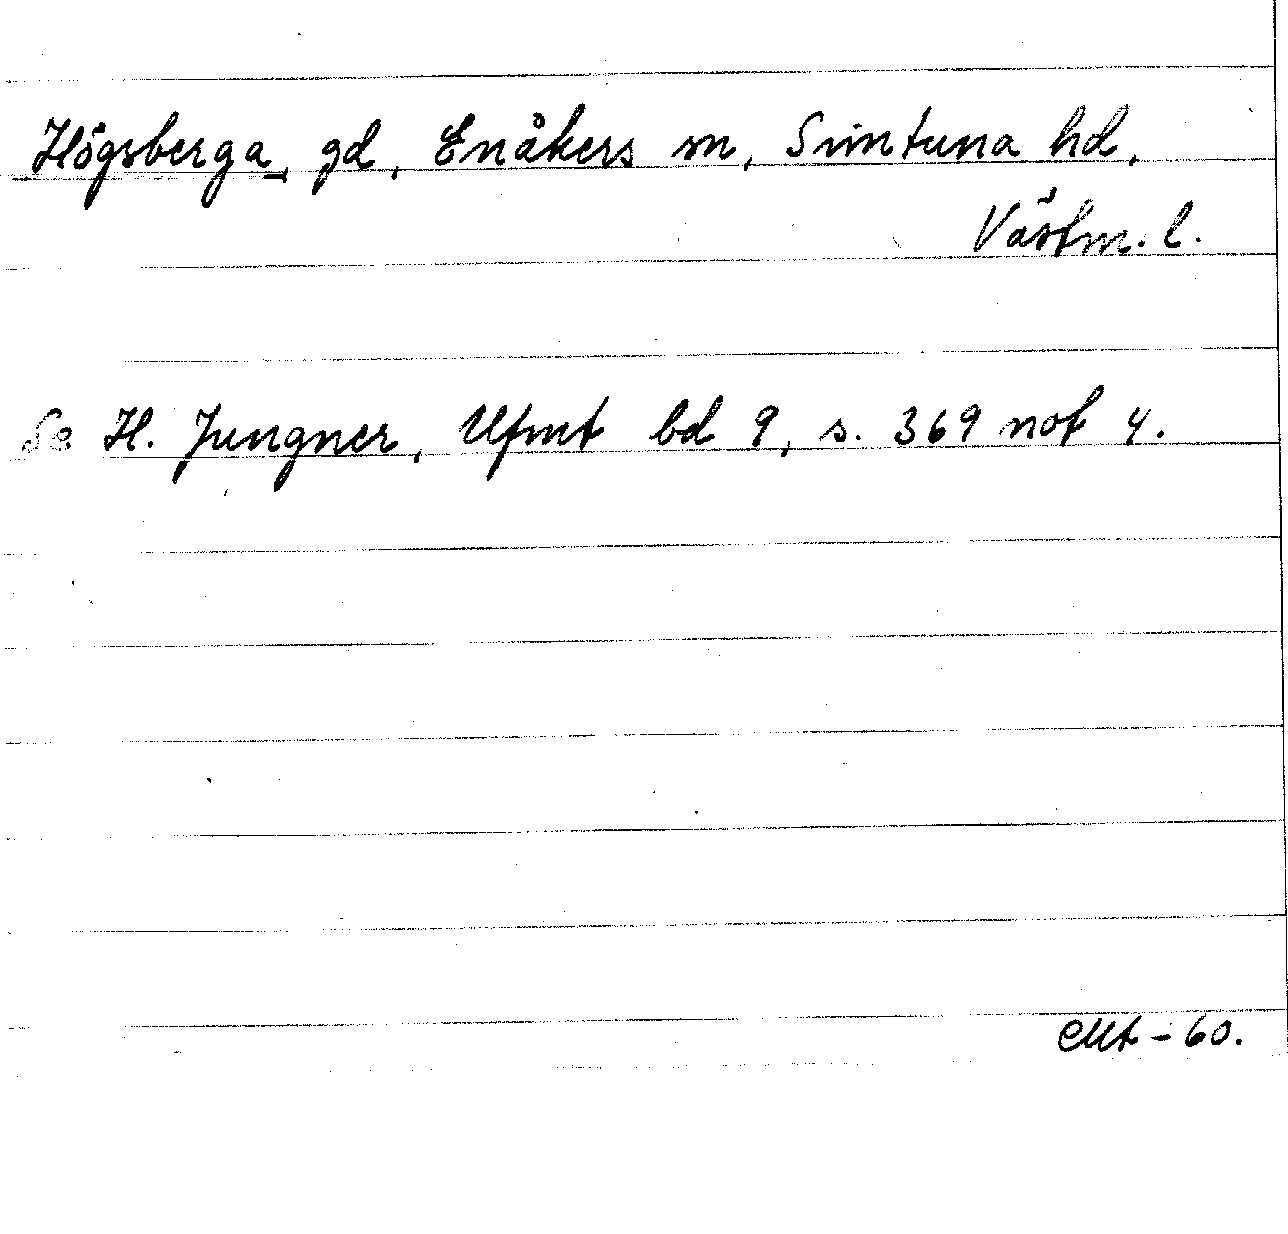 Högsberga, gd, Enåkers sn, Simtuna hd,
Västm. l.
Se H. Jungner, Ufmt bd 9, s. 369 not 4.